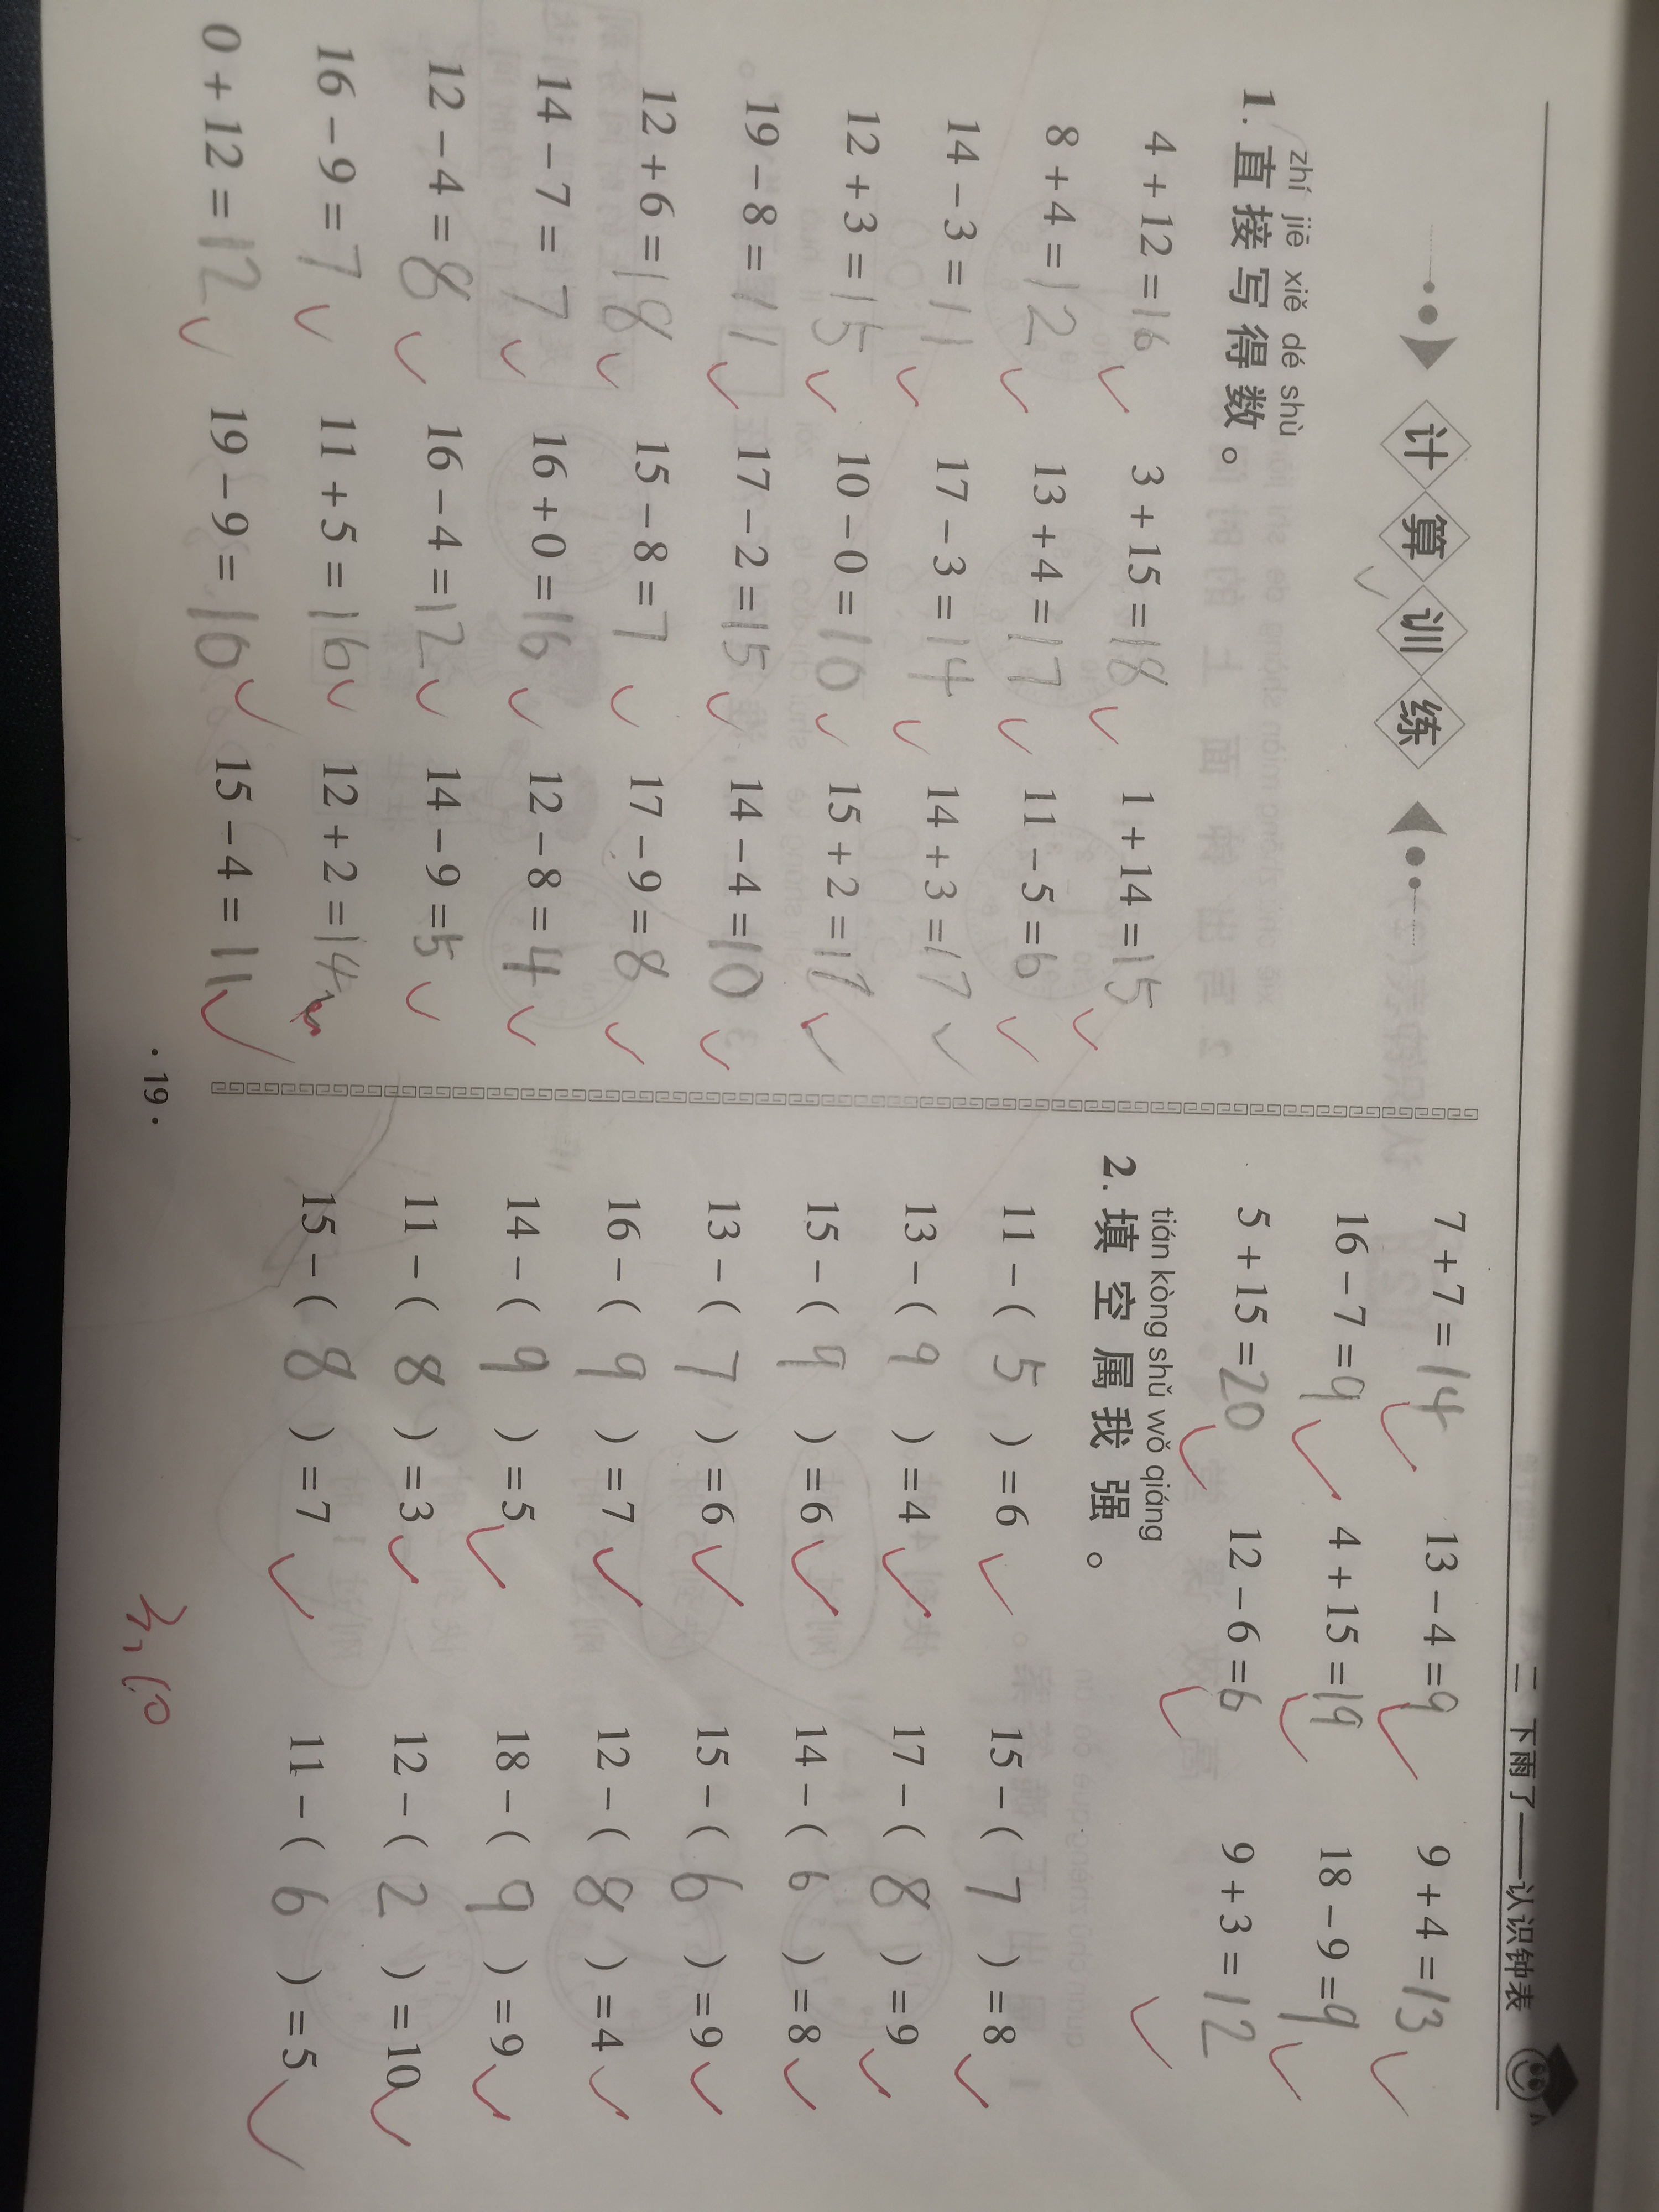 二 下雨了——认识钟表
计算训练
zhí jiē xiě dé shù
1. 直接写得数。
4+12=16 3+15=18 1+14=15
8+4=12 13+4=17 11-5=6
14-3=11 17-3=14 14+3=17
12+3=15 10-0=10 15+2=17
19-8=11 17-2=15 14-4=10
12+6=18 15-8=7 17-9=8
14-7=7 16+0=16 12-8=4
12-4=8 16-4=12 14-9=5
16-9=7 11+5=16 12+2=14
0+12=12 19-9=10 15-4=11
7+7=14 13-4=9 9+4=13
16-7=9 4+15=19 18-9=9
5+15=20 12-6=6 9+3=12
tián kòng shǔ wǒ qiáng
2. 填空属我强。
11-(5)=6 15-(7)=8
13-(9)=4 17-(8)=9
15-(9)=6 14-(6)=8
13-(7)=6 15-(6)=9
16-(9)=7 12-(8)=4
14-(9)=5 18-(9)=9
11-(8)=3 12-(2)=10
15-(8)=7 11-(6)=5
3,10
·19·